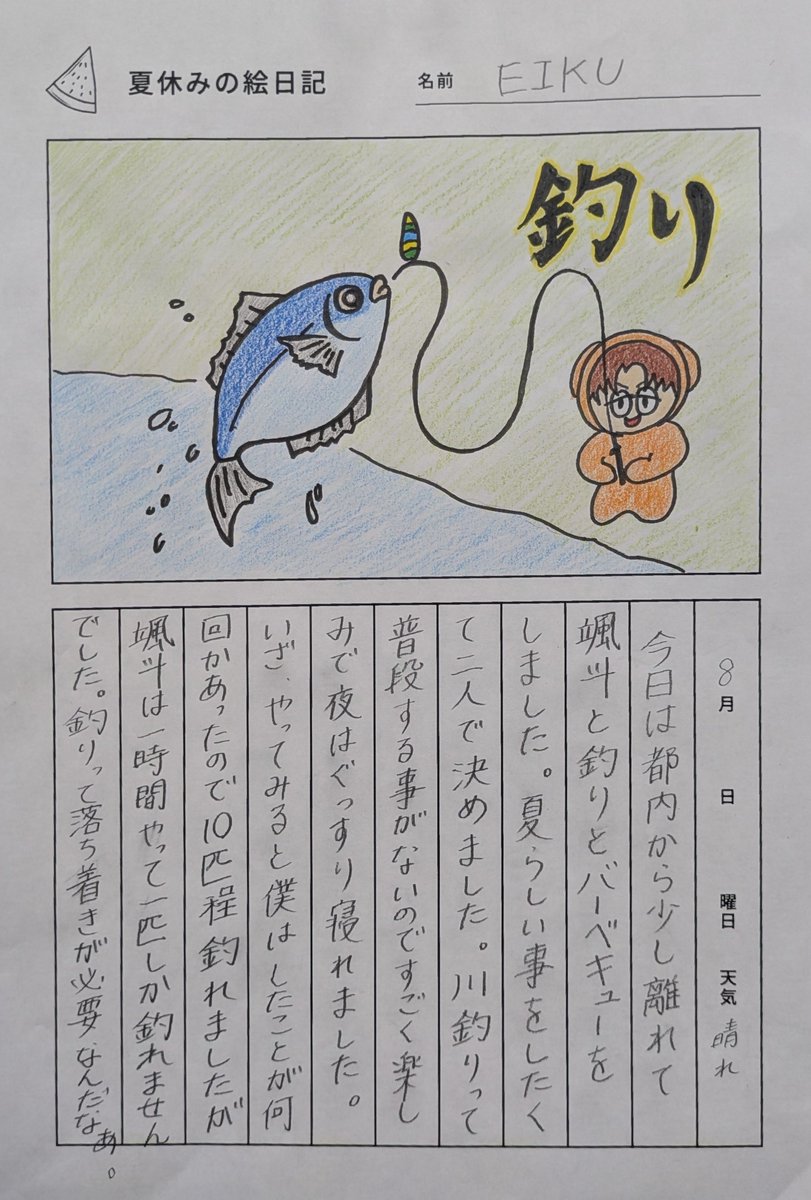 夏休みの絵日記
名前 EIKU
釣り
8月 日 曜日 天気 晴れ
今日は都内から少し離れて
颯斗と釣りとバーベキューを
しました。夏らしい事をしたく
て二人で決めました。川釣りって
普段する事がないのですごく楽し
みで夜はぐっすり寝れました。
いざ、やってみると僕はしたことが何
回かあったので10匹程釣れましたが
颯斗は一時間やって一匹しか釣れません
でした。釣りって落ち着きが必要なんだなぁ。